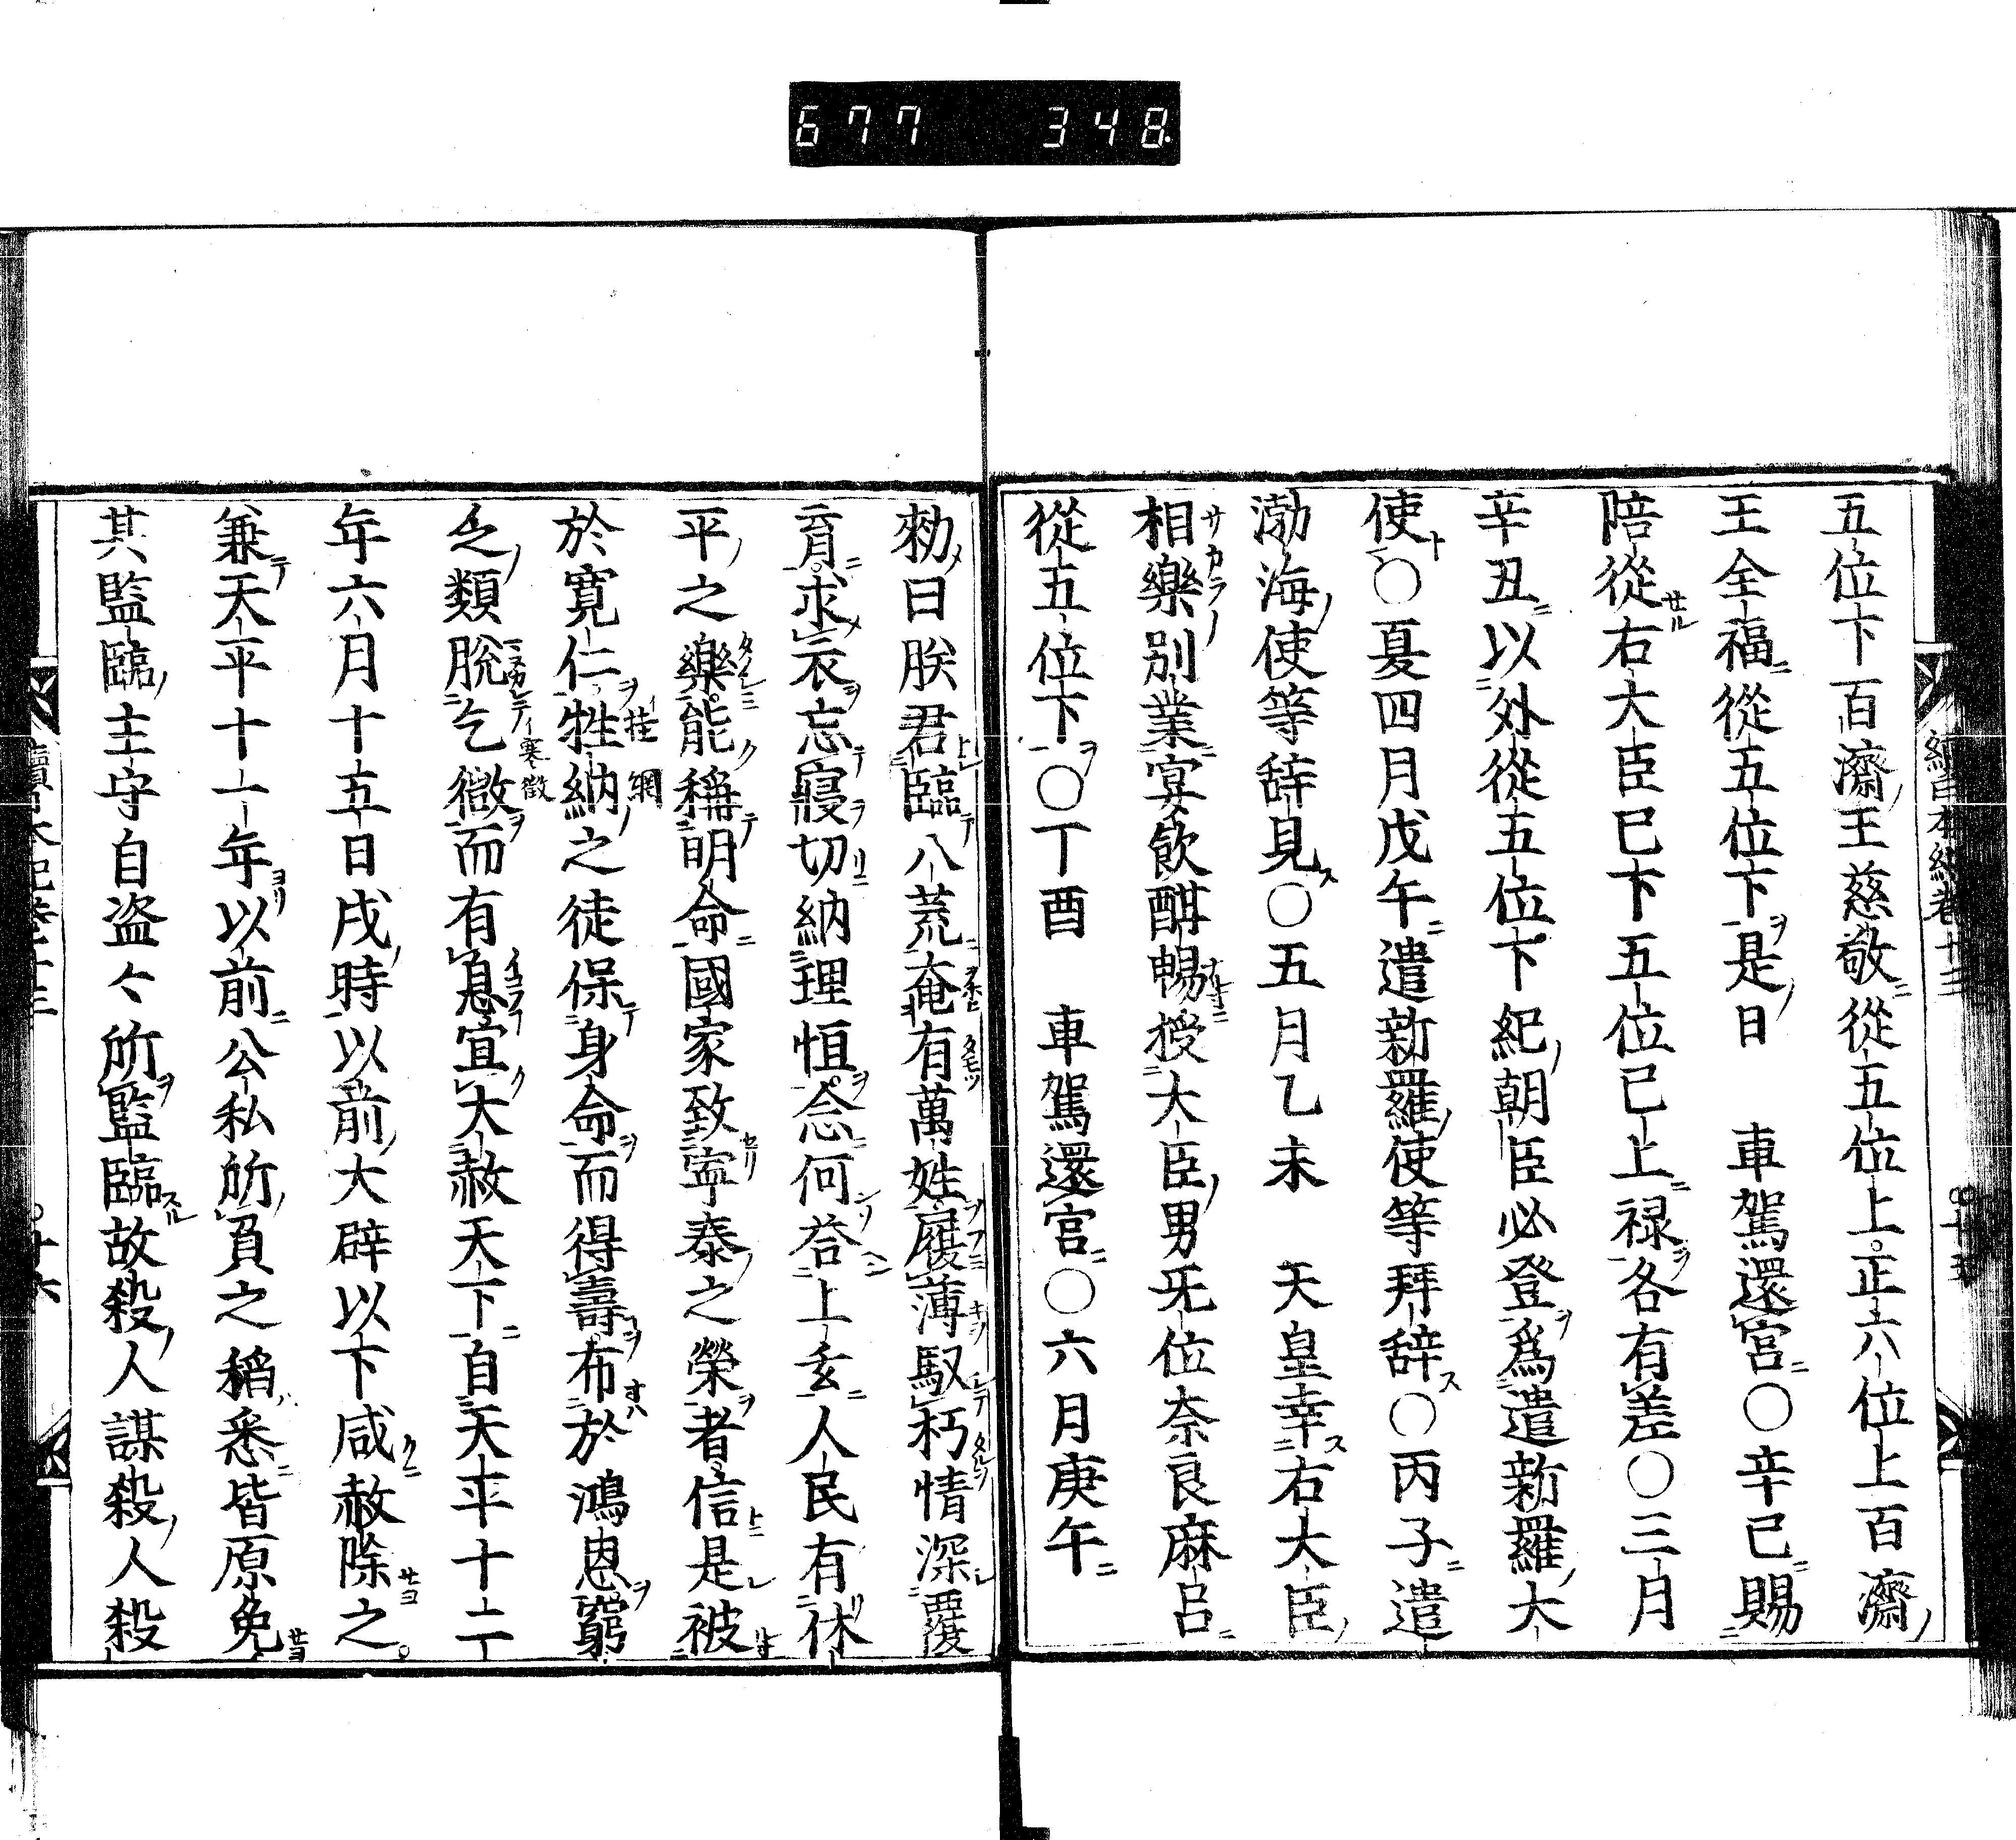 677 348
五位下百濟王慈敬從五位上正六位上百濟
王全福從五位下是日 車駕還宮〇辛己賜
陪從右大臣已下五位已上禄各有差〇三月
辛丑以外從五位下紀朝臣必登爲遣新羅大
使〇夏四月戊午遣新羅使等拜辞〇丙子遣
渤海使等辞見〇五月乙未 天皇幸右大臣
相樂別業宴飲酣暢授大臣男无位奈良麻呂
從五位下〇丁酉 車駕還宮〇六月庚午
勑曰朕君臨八荒奄有萬姓履薄馭朽情深覆
育求衣忘寢切納隍恒念何荅上玄人民有休
平之樂能稱明命國家致寧泰之榮者信是被
於寛仁牲納之徒保身命而得壽布於鴻恩窮
乏類脱乞徴而有息宜大赦天下自天平十二
年六月十五日戌時以前大辟以下咸赦除之
兼天平十一年以前公私所負之稻悉皆原免
其監臨主守自盗々所監臨故殺人謀殺人殺